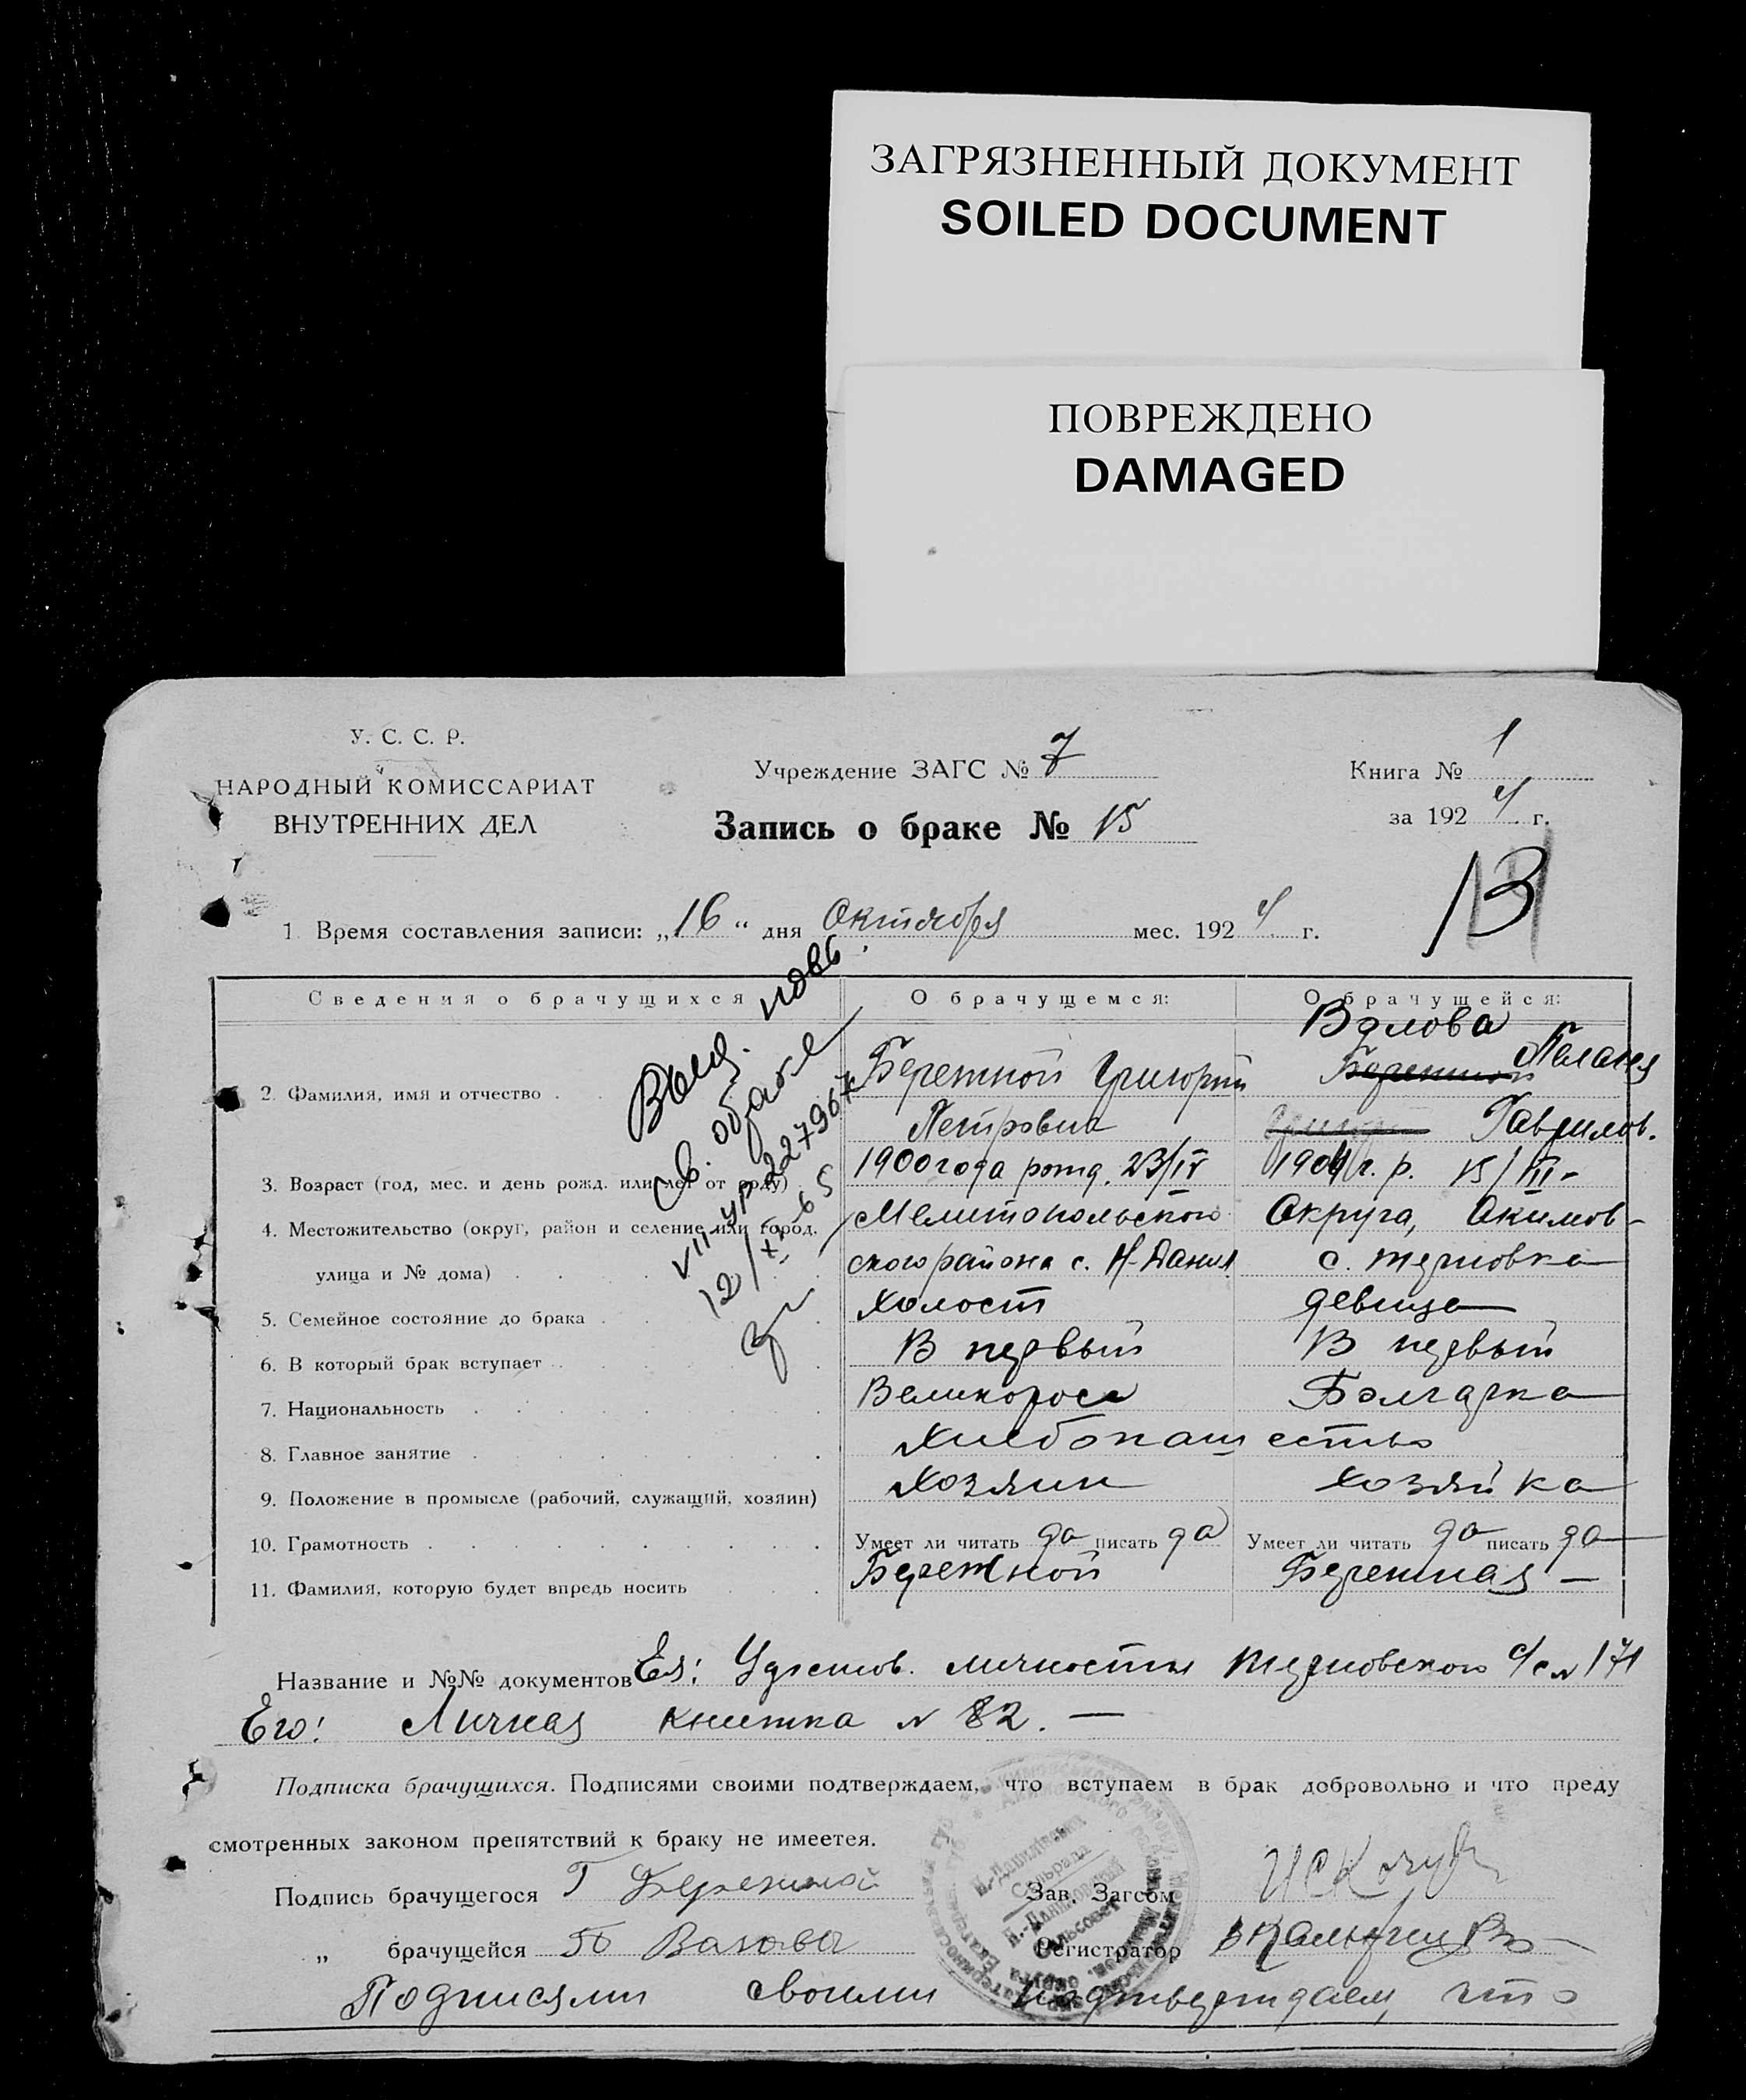 ЗАГРЯЗНЕННЫЙ ДОКУМЕНТ
SOILED DOCUMENT
ПОВРЕЖДЕНО
DAMAGED
У. С. С. Р.
НАРОДНЫЙ КОМИССАРИАТ
ВНУТРЕННИХ ДЕЛ
Учреждение ЗАГС № 7
Запись о браке № 15
Книга № 1
за 192 4 г.
13
1 Время составления записи: „16“ дня Октября мес. 192 4 г.
Сведения о брачущихся
О брачущемся:
О брачущейся:
Выд. повт.
св. о браке
УР 227967
12/XI-65
Валова
2. Фамилия, имя и отчество . Бережной Григорий Бережной Пелагея
Петрович Гаврилов.
3. Возраст (год, мес. и день рожд. или лет от роду) 1900 года рожд. 23/IV 1904 г. р. 15/III-
4. Местожительство (округ, район и селение или город, Мелитопольского Округа, Акимов-
улица и № дома) ского района с. Н-Данил с. Терновка
5. Семейное состояние до брака . Холост девица
6. В который брак вступает . В первый В первый
7. Национальность Великоросс Болгарка
8. Главное занятие Хлебопашество
9. Положение в промысле (рабочий, служащий, хозяин) Хозяин Хозяйка
10. Грамотность Умеет ли читать да писать да Умеет ли читать да писать да
11. Фамилия, которую будет впредь носить Бережной Бережная —
Название и №№ документов Ея: Удостов. личности Терновского с/с № 171
Его: Личная книжка № 82. —
Подписка брачущихся. Подписями своими подтверждаем, что вступаем в брак добровольно и что преду
смотренных законом препятствий к браку не имеется.
Подпись брачущегося Г Бережной Зав. Загсом
„ брачущейся Валова Регистратор
Н.-Данилівська
Сільрада
Н.-Даниловский
Сельсовет
Подписями своими подтверждаем, что